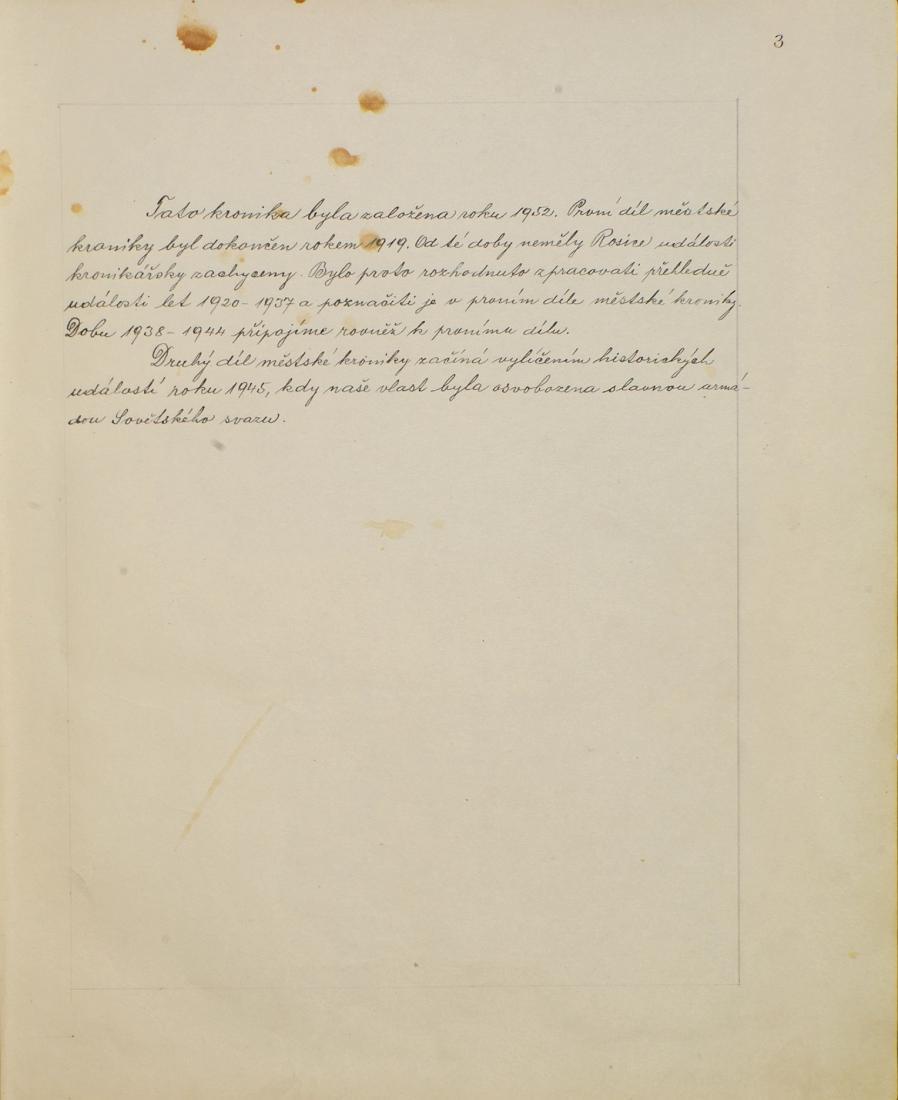 3
Tato kronika byla založena roku 1952. První díl městské
kroniky byl dokončen rokem 1919. Od té doby neměly Rosice události
kronikářsky zachyceny. Bylo proto rozhodnuto zpracovati přehledně
události let 1920-1937 a poznačiti je v prvním díle městské kroniky.
Dobu 1938-1944 připojíme rovněž k prvnímu dílu.
Druhý díl městské kroniky začíná vylíčením historických
událostí roku 1945, kdy naše vlast byla osvobozena slavnou armá-
dou Sovětského svazu.